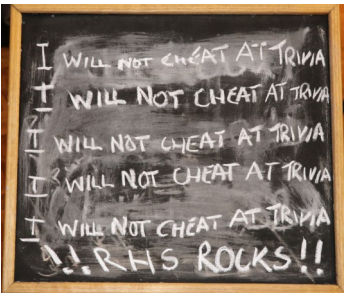 I WILL NOT CHEAT AT TRIVIA
I WILL NOT CHEAT AT TRIVIA
I WILL NOT CHEAT AT TRIVIA
I WILL NOT CHEAT AT TRIVIA
I WILL NOT CHEAT AT TRIVIA
!!RHS ROCKS!!